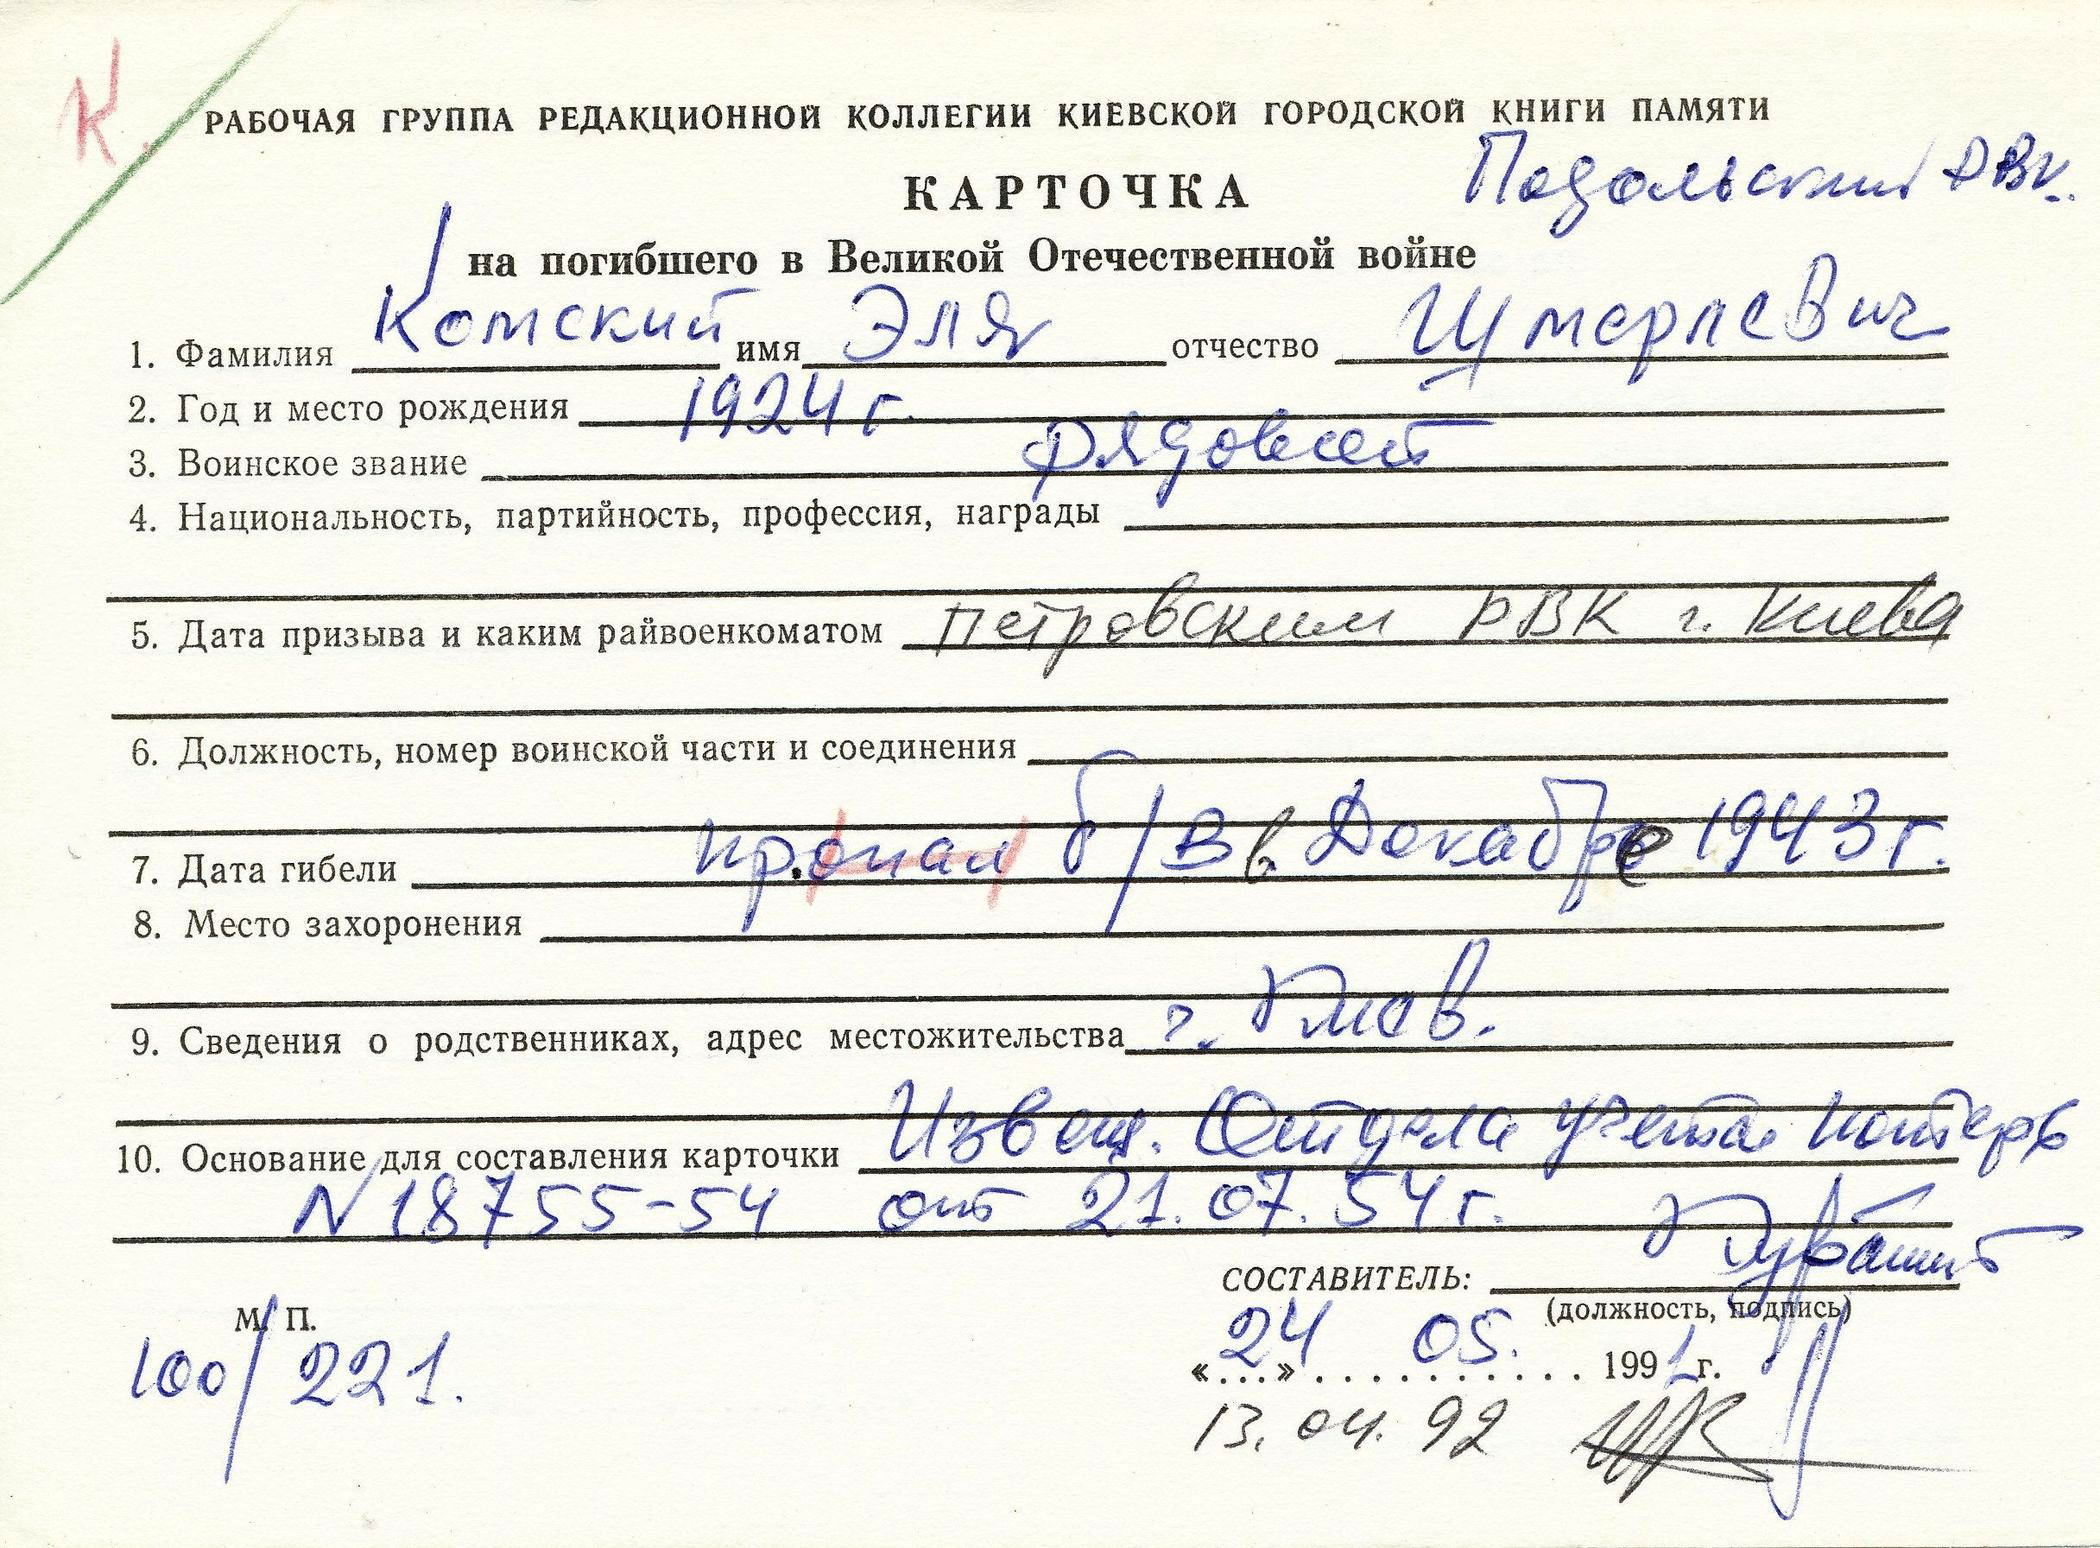 К.
РАБОЧАЯ ГРУППА РЕДАКЦИОННОЙ КОЛЛЕГИИ КИЕВСКОЙ ГОРОДСКОЙ КНИГИ ПАМЯТИ
Подольский РВК.
КАРТОЧКА
на погибшего в Великой Отечественной войне
1. Фамилия Комский имя Эля отчество Шмерлевич
2. Год и место рождения 1924 г.
3. Воинское звание рядовой
4. Национальность, партийность, профессия, награды
5. Дата призыва и каким райвоенкоматом Петровским РВК г. Киева
6. Должность, номер воинской части и соединения
7. Дата гибели пропал б/в в Декабре 1943 г.
8. Место захоронения
9. Сведения о родственниках, адрес местожительства г. Киев.
10. Основание для составления карточки Извещ. Отдела учета потерь
N 18755-54 от 21.07.54 г.
СОСТАВИТЕЛЬ:
(должность, подпись)
М. П.
100/221.
«24» 05. 1991 г.
13.04.92